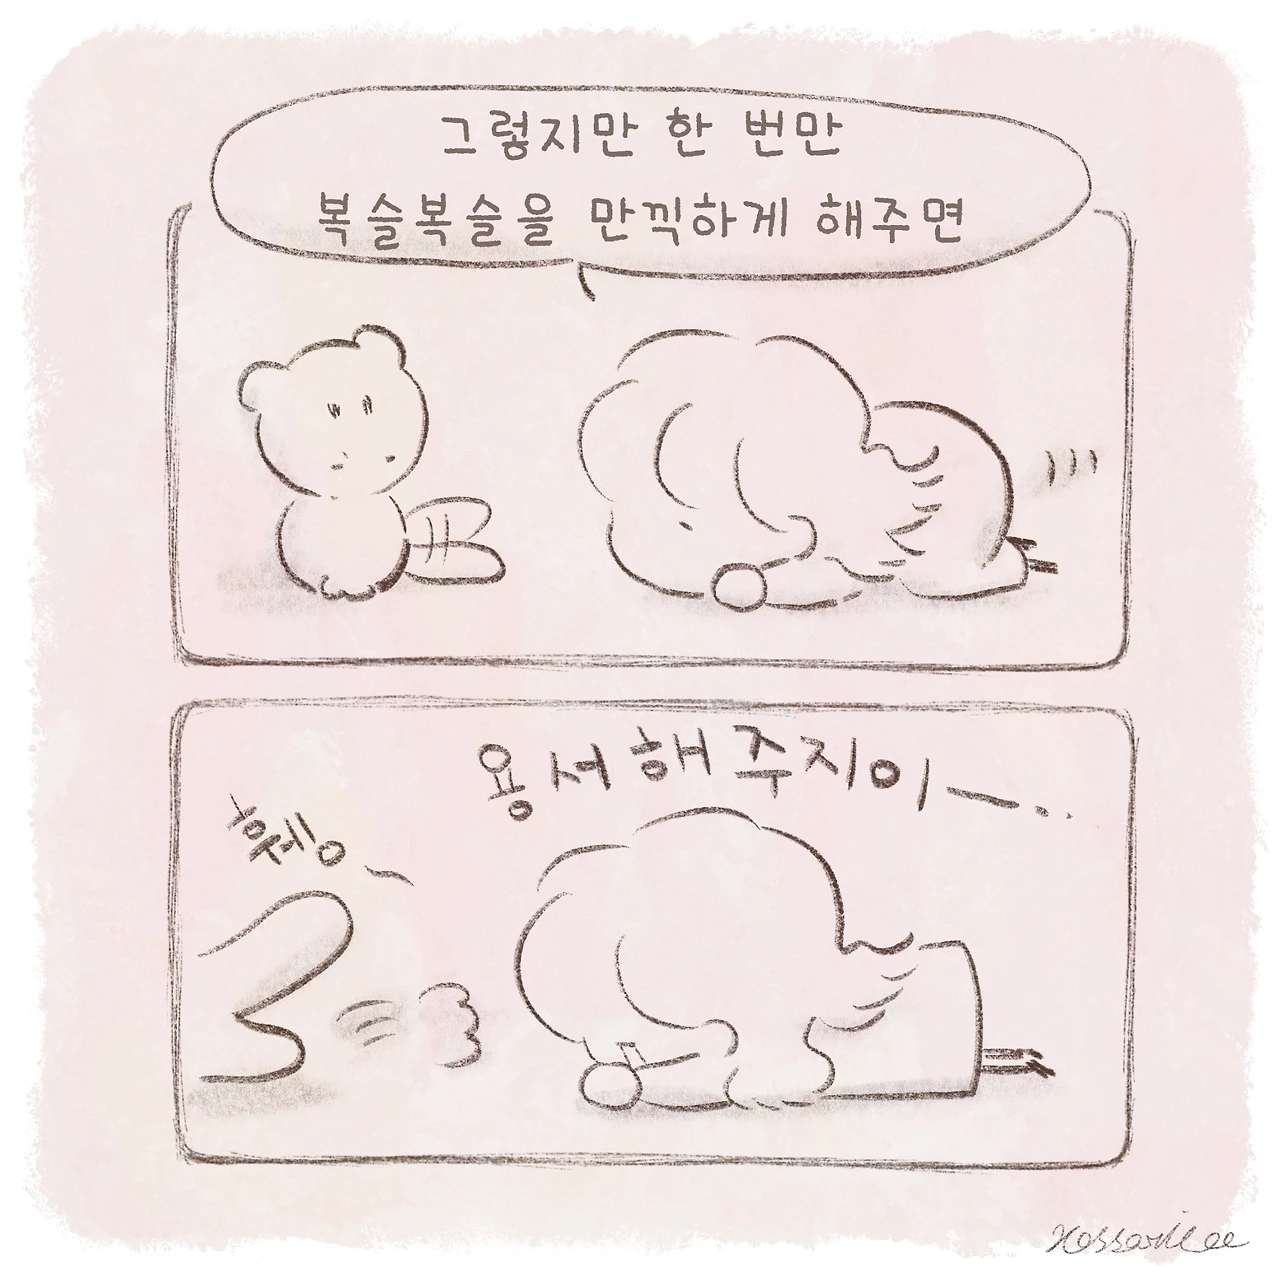 그렇지만 한 번만
복슬복슬을 만끽하게 해주면
용서해주지이~..
휑~